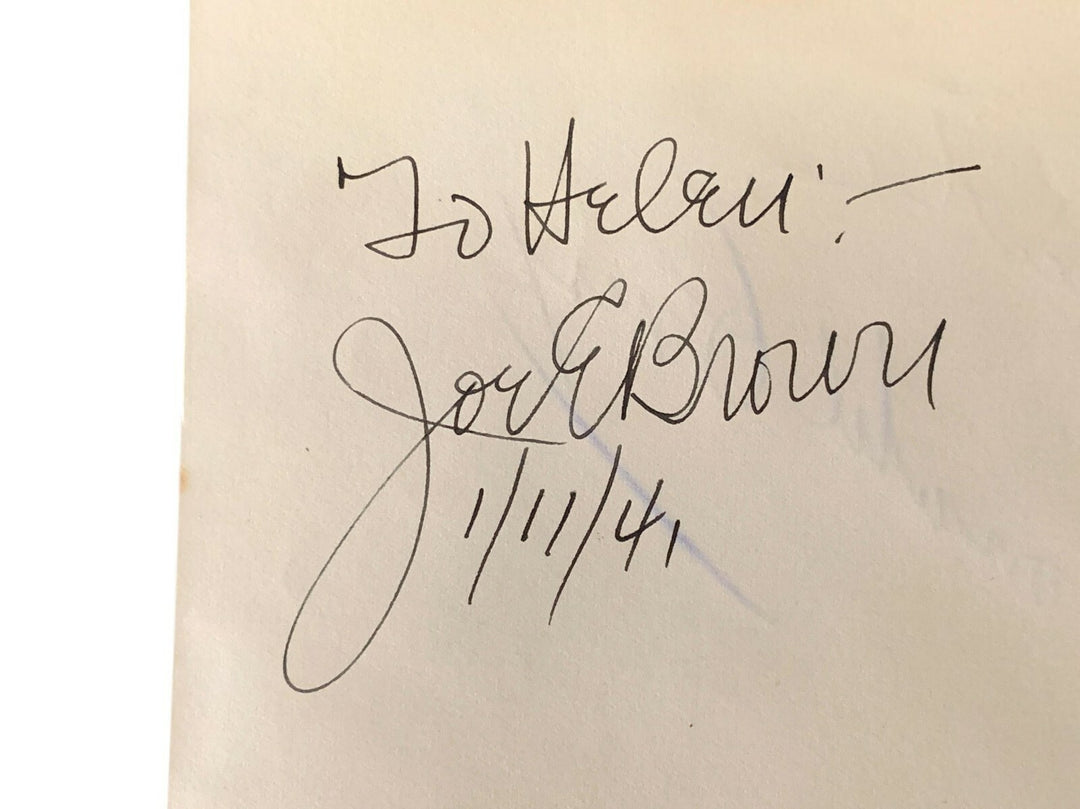 To Helen:—
Joe E Brown
1/11/41